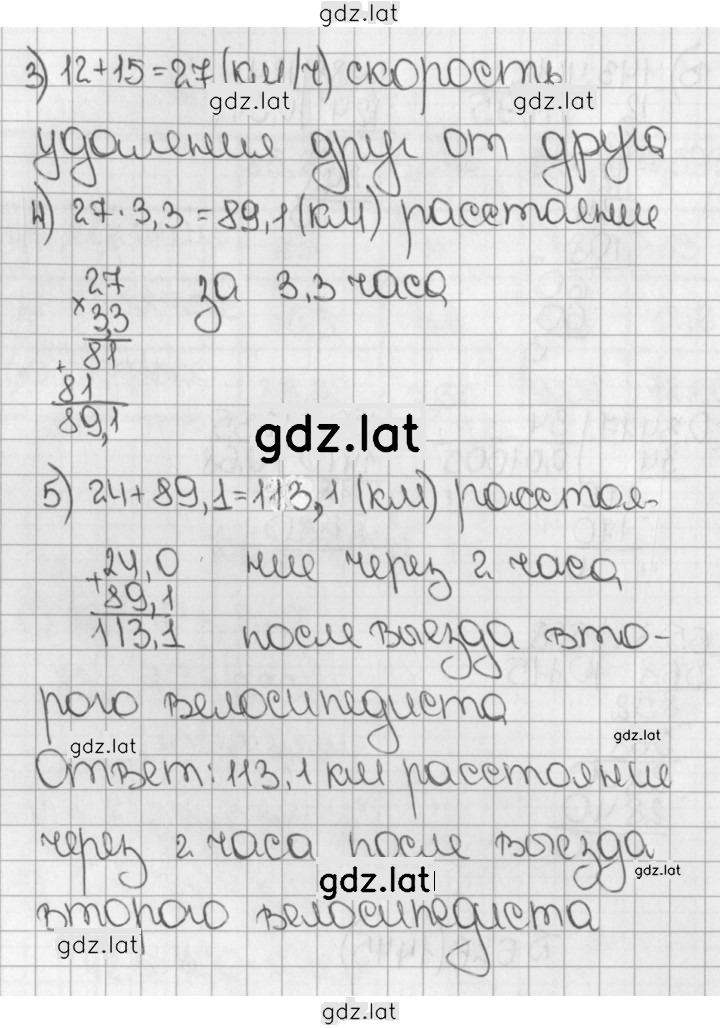 gdz.lat
3) 12+15=27 (км/ч) скорость
gdz.lat gdz.lat
удаления друг от друга
4) 27·3,3=89,1 (км) расстояние
27 за 3,3 часа
×3,3
81
+
81
89,1
gdz.lat
5) 24+89,1=113,1 (км) расстоя-
24,0 ние через 2 часа
+89,1
113,1 после выезда вто-
рого велосипедиста
gdz.lat gdz.lat
Ответ: 113,1 км расстояние
через 2 часа после выезда
gdz.lat gdz.lat
второго велосипедиста
gdz.lat
gdz.lat